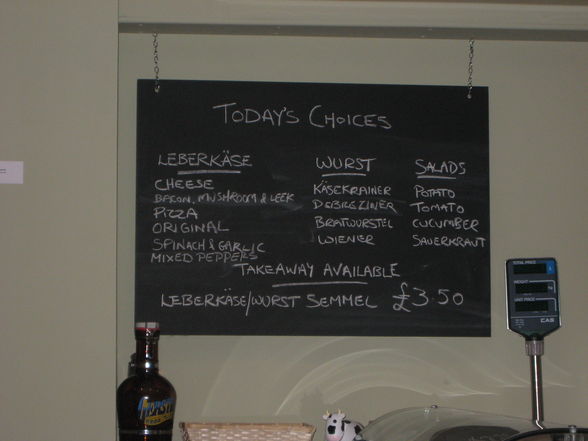 TODAY'S CHOICES
LEBERKÄSE
CHEESE
BACON, MUSHROOM & LEEK
PIZZA
ORIGINAL
SPINACH & GARLIC
MIXED PEPPERS
WURST
KÄSEKRAINER
DEBREZINER
BRATWURSTEL
WIENER
SALADS
POTATO
TOMATO
CUCUMBER
SAUERKRAUT
TAKEAWAY AVAILABLE
LEBERKÄSE/WURST SEMMEL £3.50
TOTAL PRICE
WEIGHT
UNIT PRICE
CAS